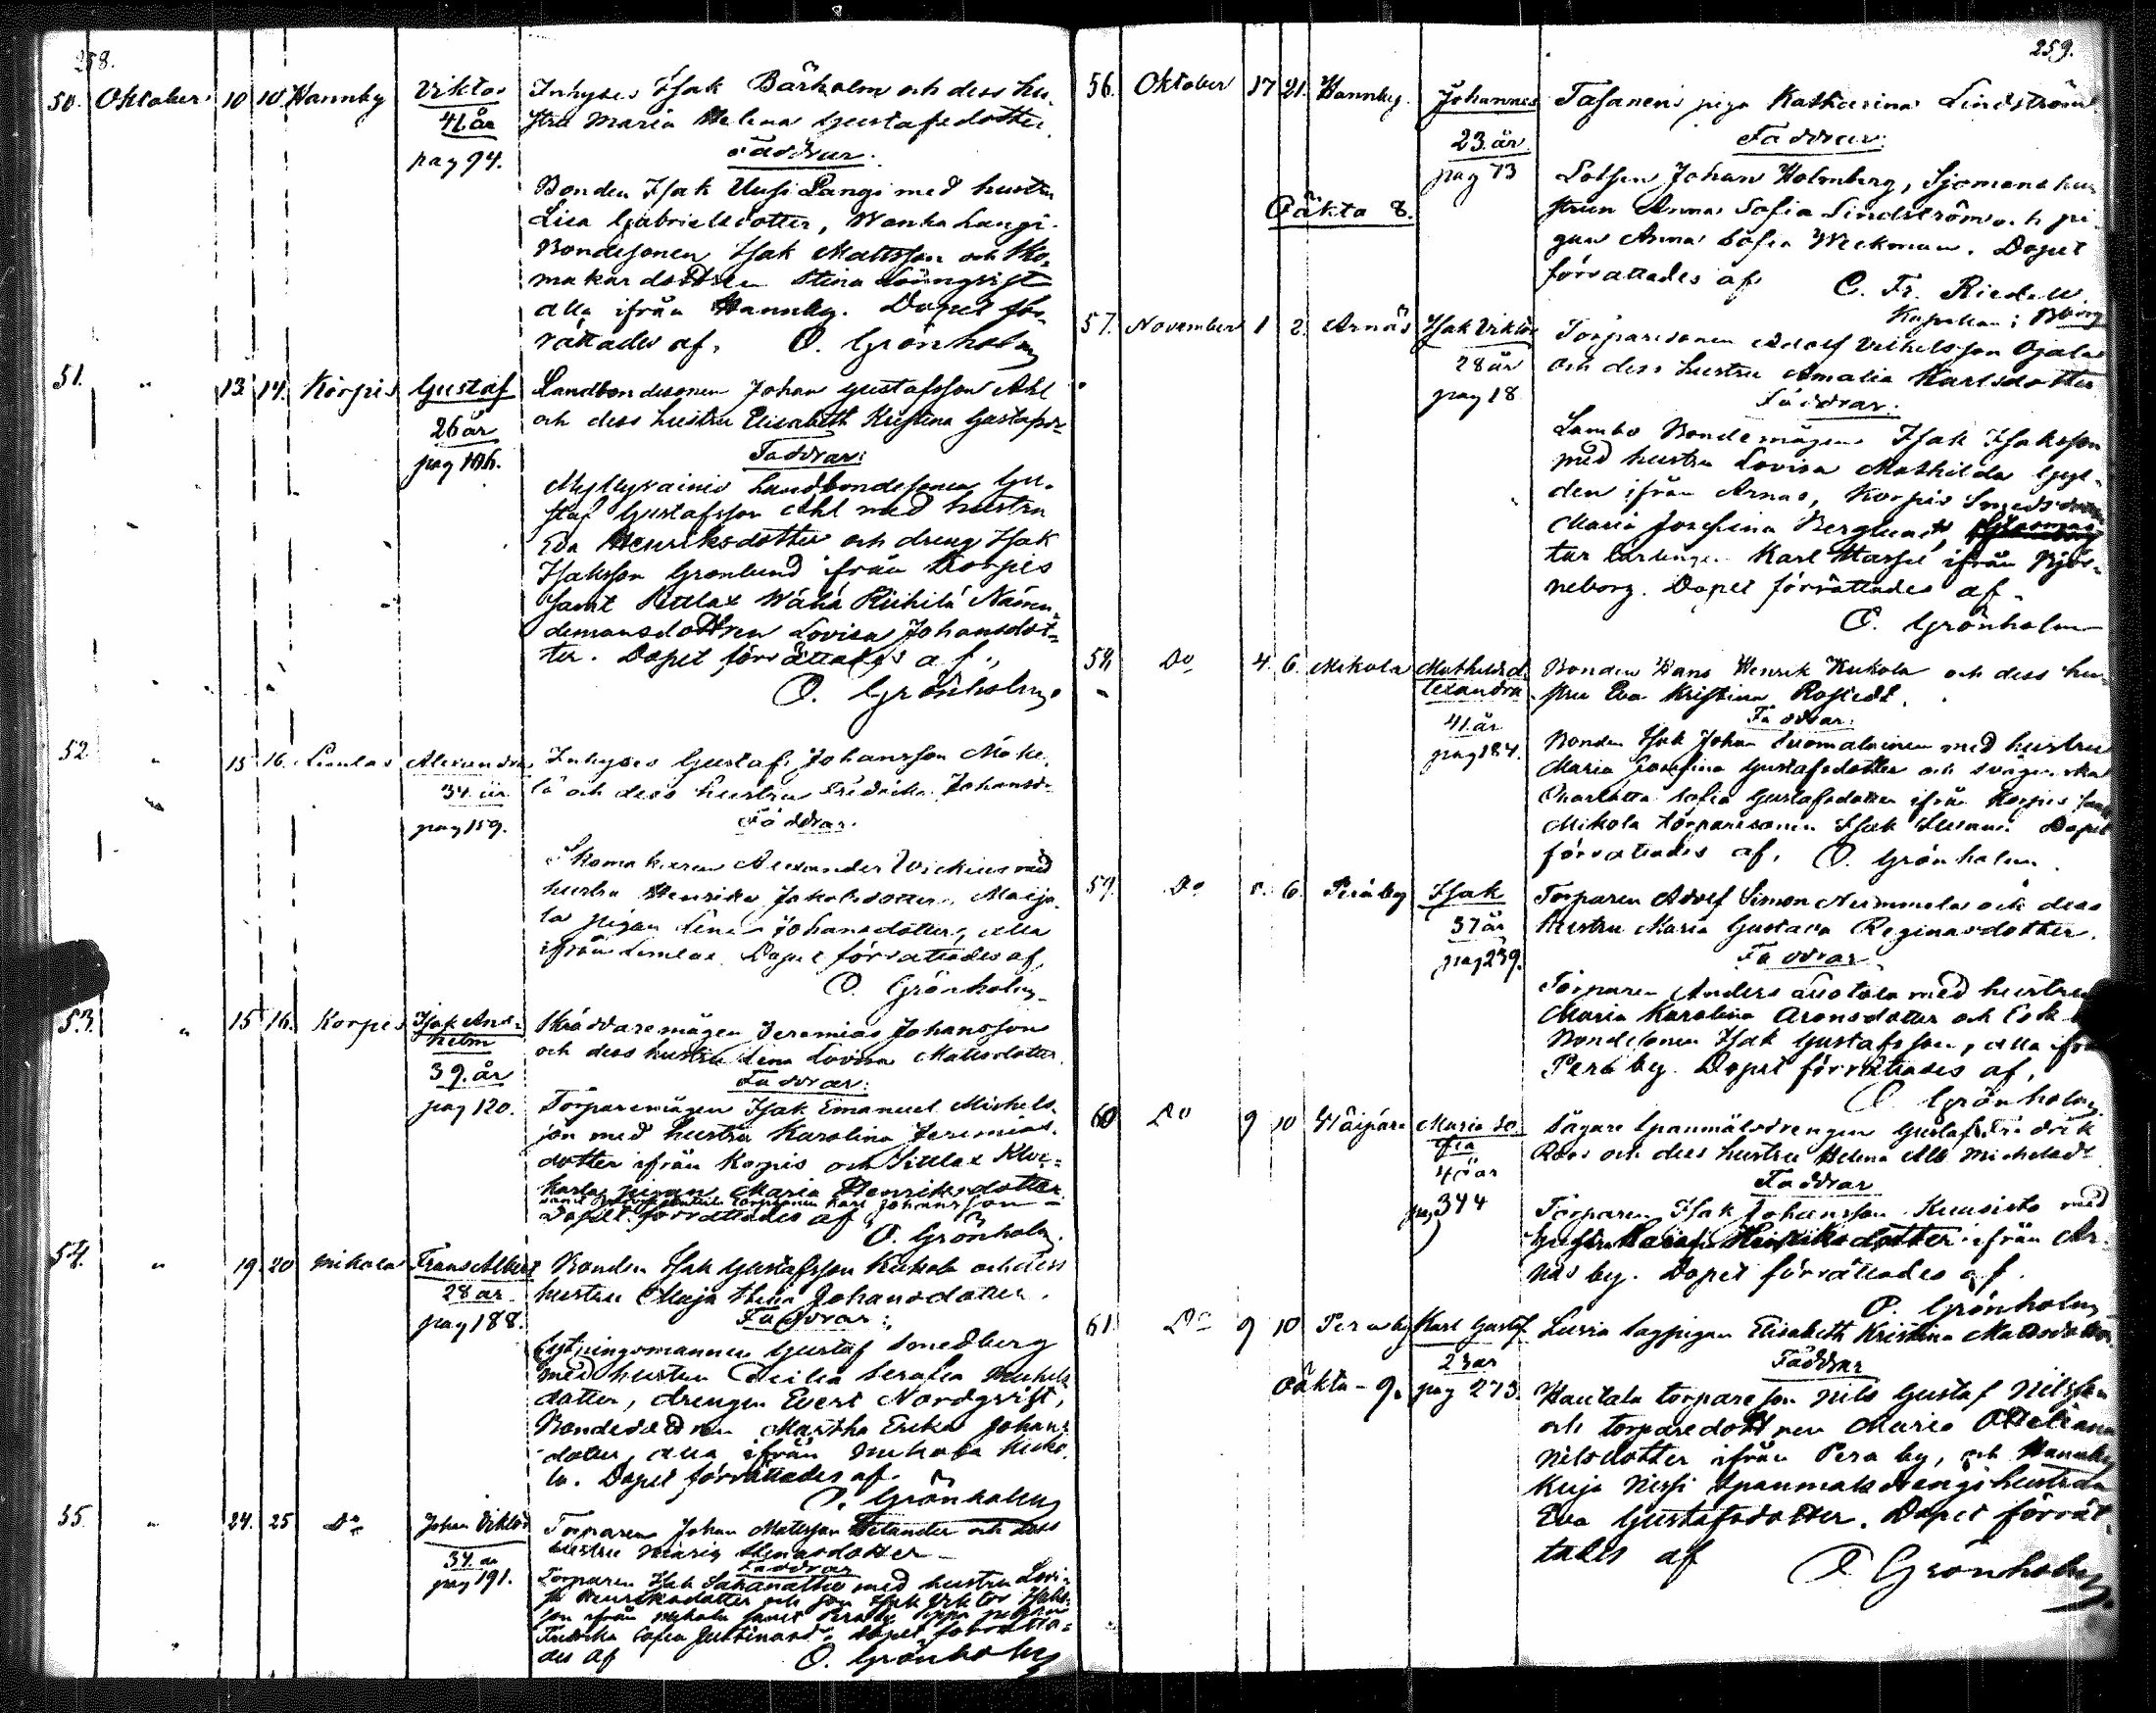 258.
50. Oktober 10 10 Hannby Viktor Inhyses Isak Bärholm och dess hu-
41 år stru Maria Helena Gustafsdotter
pag 94. Faddrar:
Bonden Isak Uusi Langi med hustru
Lisa Gabrielsdotter, Wanha Langi
Bondesonen Isak Mattsson och Sko-
makardottren Stina Löingvist
alla ifrån Hannby. Dopet för-
rättades af. O. Grönholm
51. " 13 14. Korpis Gustaf Landbondesonen Johan Gustafsson Ahl
26 år och dess hustru Elisabeth Kristina Gustafsd
pag 106. Faddrar:
Myllyrainio Landbondesonen Gu-
staf Gustafsson Ahl med hustru
Eva Henriksdotter och dreng Isak
Isaksson Grönlund ifrån Korpis
samt Sittlax Wähä Riihilä Näm-
demansdottren Lovisa Johansdot-
ter. Dopet förrättades af.,
O. Grönholm.
52 " 15 16. Lemlax Alexandra Inhyses Gustaf Johansson Mäke-
34 år lä och dess hustru Fredrika Johansd
pag 159. Faddrar.
Skomakaren Alexander Wickius med
hustru Henrika Jakobsdotter, Maija-
la pigan Lena Johansdotter, alla
ifrån Lemlax. Dopet förrättades af,
O. Grönholm
53. " 15 16. Korpis Isak Ans-
helm Skräddaremågen Jeremias Johansson
och dess hustru Lena Lovisa Matsdotter.
39. år Faddrar:
pag 120. Torparemågen Isak Emanuel Michels-
son med hustru Karolina Jeremias-
dotter ifrån Korpis och Sittlax
pigan Maria Henriksdotter
samt torparsonen Karl Johansson
Dopet förrättades af O. Grönholm.
54. " 19. 20 Mikola Frans Albert Bonden Isak Gustafsson Kukola och dess
28 år hustru Maja Stina Johansdotter.
pag 188. Faddrar:
med hustru Cecilia Serafia Michels
dotter, drengen Evert Nordqvist,
Bondedottren Martha Erika Johans-
dotter, alla ifrån Mikola Kuko-
la. Dopet förrättades af.
O. Grönholm
55. " 24. 25 Do Johan Viktor Torparen Johan Matsson Helander och dess
34. år hustru Maria Stenasdotter
pag 191. Faddrar
Torparen Isak med hustru Lovi-
sa Henriksdotter och son Isak Viktor Isaks-
son ifrån Mikola samt Peraby
Fredrika Sofia Gustinasd. Dopet förrätta-
des af O. Grönholm
259.
56. Oktober 17 21. Hannby. Johannes Tasanens piga Katharina Lindström
23. år Faddrar:
pag 73 Lotsen Johan Holmberg, Sjömans hu-
Oäkta 8. strun Anna Sofia Lindström och pi-
gan Anna Sofia Weckman. Dopet
förrättades af C. Fr. Riedell.
Kapellan i Bborg
57. November 1 2. Arnäs Isak Viktor Torparesonen Adolf Vilhelsson Ojala
28 år och dess hustru Amalia Karlsdotter
pag 18 Faddrar:
Lambo Bondemågen Isak Isaksson
med hustru Lovisa Mathilda Gyl-
den ifrån Arnäs, Korpis
Maria Josefina Berglund,
Karl Hassel ifrån Björ-
neborg. Dopet förrättades af.
O. Grönholm
58. Do 4. 6. Mikola Mathilda
lexandra Bonden Hans Henrik Kukola och dess hu-
stru Eva Kristina Rostedt.
41. år Faddrar:
pag 184. Bonden Isak Johan Suomalainen med hustru
Maria Josefina Gustafsdotter och svägerska
Charlotta Sofia Gustafsdotter ifrån Korpis samt
Mikola torparesonen Isak Dopet
förrättades af, O. Grönholm.
59. Do 5. 6. Peräby Isak Torparen Adolf Simon Nummela och dess
37 år hustru Maria Gustava Reginasdotter.
pag 239. Faddrar
Torparen Anders med hustru
Maria Karolina Aronsdotter och
Bondesonen Isak Gustafsson, alla ifrån
Peräby. Dopet förrättades af,
O. Grönholm
60 Do 9 10 Maria So-
fia Sågare Spanmålsdrengen Gustaf Fredrik
Roos och dess hustru Helena Alb Michelsdr
40 år Faddrar
pag 344 Torparen Isak Johansson Kuusisto med
hustru Maria Henriksdotter ifrån Ar-
näs by. Dopet förrättades af.
O. Grönholm
61. Do 9 10 Peraby Karl Gustaf Lusia sagpigan Elisabeth Kristina Matsdotter
23 år Faddrar
Oäkta - 9. pag 273. Hautala torpareson Nils Gustaf Nilsson
och torparedottren Maria Ottiliana
Nilsdotter ifrån Pera by, och Hannby
Kuja Nissi Spanmåls drengs hustrun
Eva Gustafsdotter. Dopet förrät-
tades af O Grönholm